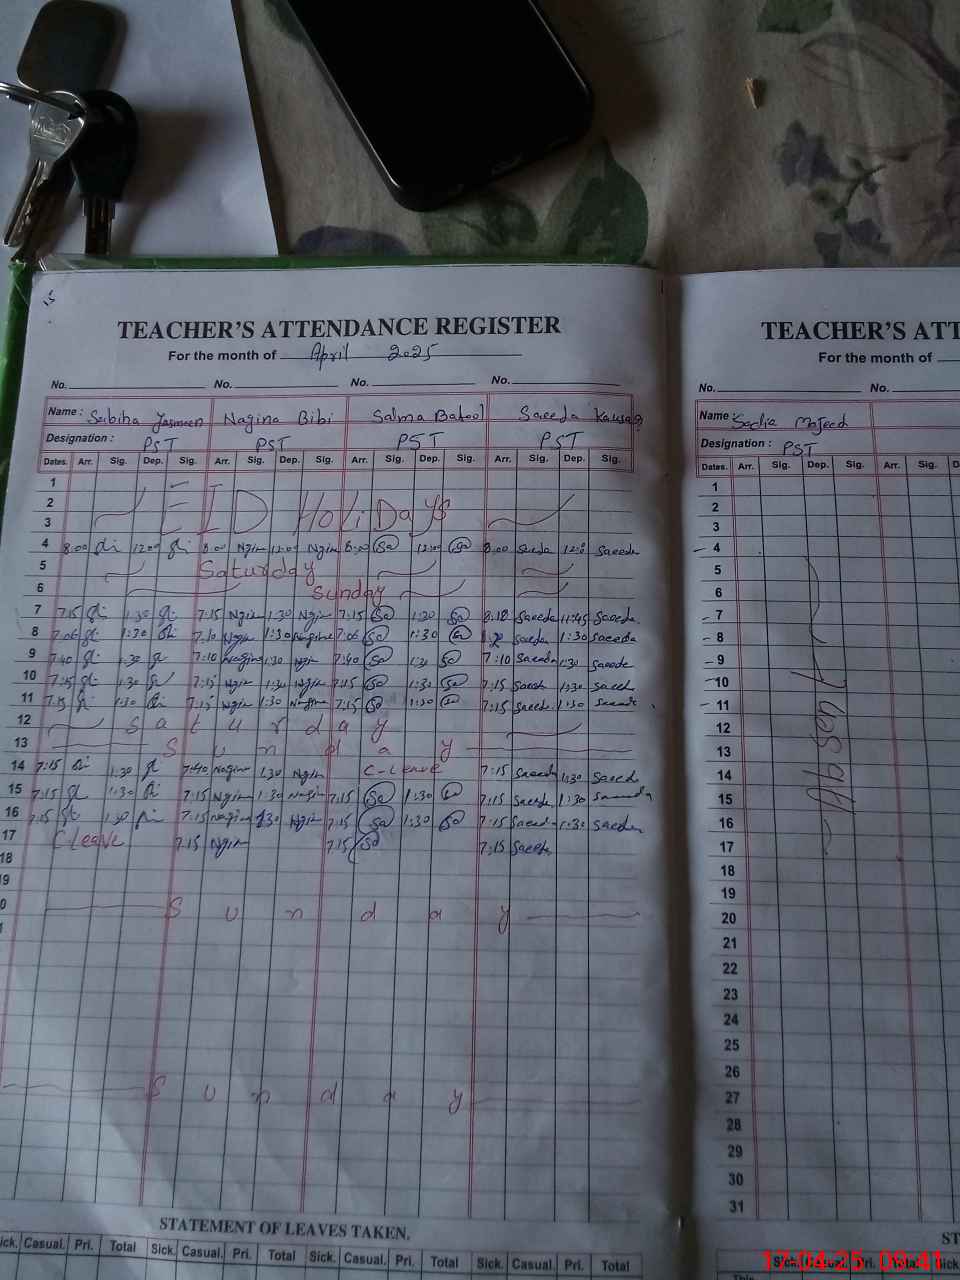 15
TEACHER'S ATTENDANCE REGISTER
For the month of April 2025
No. No. No. No.
Name : Sabiha Yasmeen Nagina Bibi Salma Batool Saeeda Kausar
Designation : PST PST PST PST
Dates. Arr. Sig. Dep. Sig. Arr. Sig. Dep. Sig. Arr. Sig. Dep. Sig. Arr. Sig. Dep. Sig.
1
2 EID HoliDays
3
4 8:00 12:00 8:00 Ngin 12:00 Ngin 8:00 Sa 12:00 Sa 8:00 Saeeda Saeeda
5 Saturday
6 Sunday
7 7:15 1:30 7:15 Ngin 1:30 Ngin 7:15 Sa 1:30 Sa 8:18 Saeeda 11:45 Saeeda
8 7:06 1:30 7:10 Ngin 1:30 Nagina 7:06 Sa 1:30 Sa Saeeda 1:30 Saeeda
9 7:40 1:30 7:10 Nagina 1:30 Ngin 7:40 Sa 1:30 Sa 7:10 Saeeda 1:30 Saeeda
10 7:15 1:30 7:15 Ngin 1:30 Ngin 7:15 Sa 1:30 Sa 7:15 Saeed 1:30 Saeed
11 7:15 1:30 7:15 Ngin 1:30 Nagina 7:15 Sa 1:30 Sa 7:15 Saeed 1:30 Saeede
12 Saturday
13 Sunday
14 7:15 1:30 7:40 Nagina 1:30 Ngin C-Leave 7:15 Saeeda 1:30 Saeed
15 7:15 1:30 7:15 Ngin 1:30 Nagin 7:15 Sa 1:30 Sa 7:15 Saeeda 1:30 Saeeda
16 7:15 1:30 7:15 Nagina 1:30 Ngin 7:15 Sa 1:30 Sa 7:15 Saeeda 1:30 Saeeda
17 C Leave 7:15 Ngin 7:15 Sa 7:15 Saeeda
18
19
0 Sunday
1
Sunday
STATEMENT OF LEAVES TAKEN.
ick. Casual. Pri. Total Sick. Casual. Pri. Total Sick. Casual. Pri. Total Sick. Casual. Pri. Total
TEACHER'S ATT
For the month of
No. No.
Name : Sadia Majeed
Designation : PST
Dates. Arr. Sig. Dep. Sig. Arr. Sig. D
1
2
3
4
5
6
7
8
9
10
11
12
13
14
15
16
17
18
19
20
21
22
23
24
25
26
27
28
29
30
31
ST
Sick. Casual. Pri. Total Sick
This
17.04.25 09:41